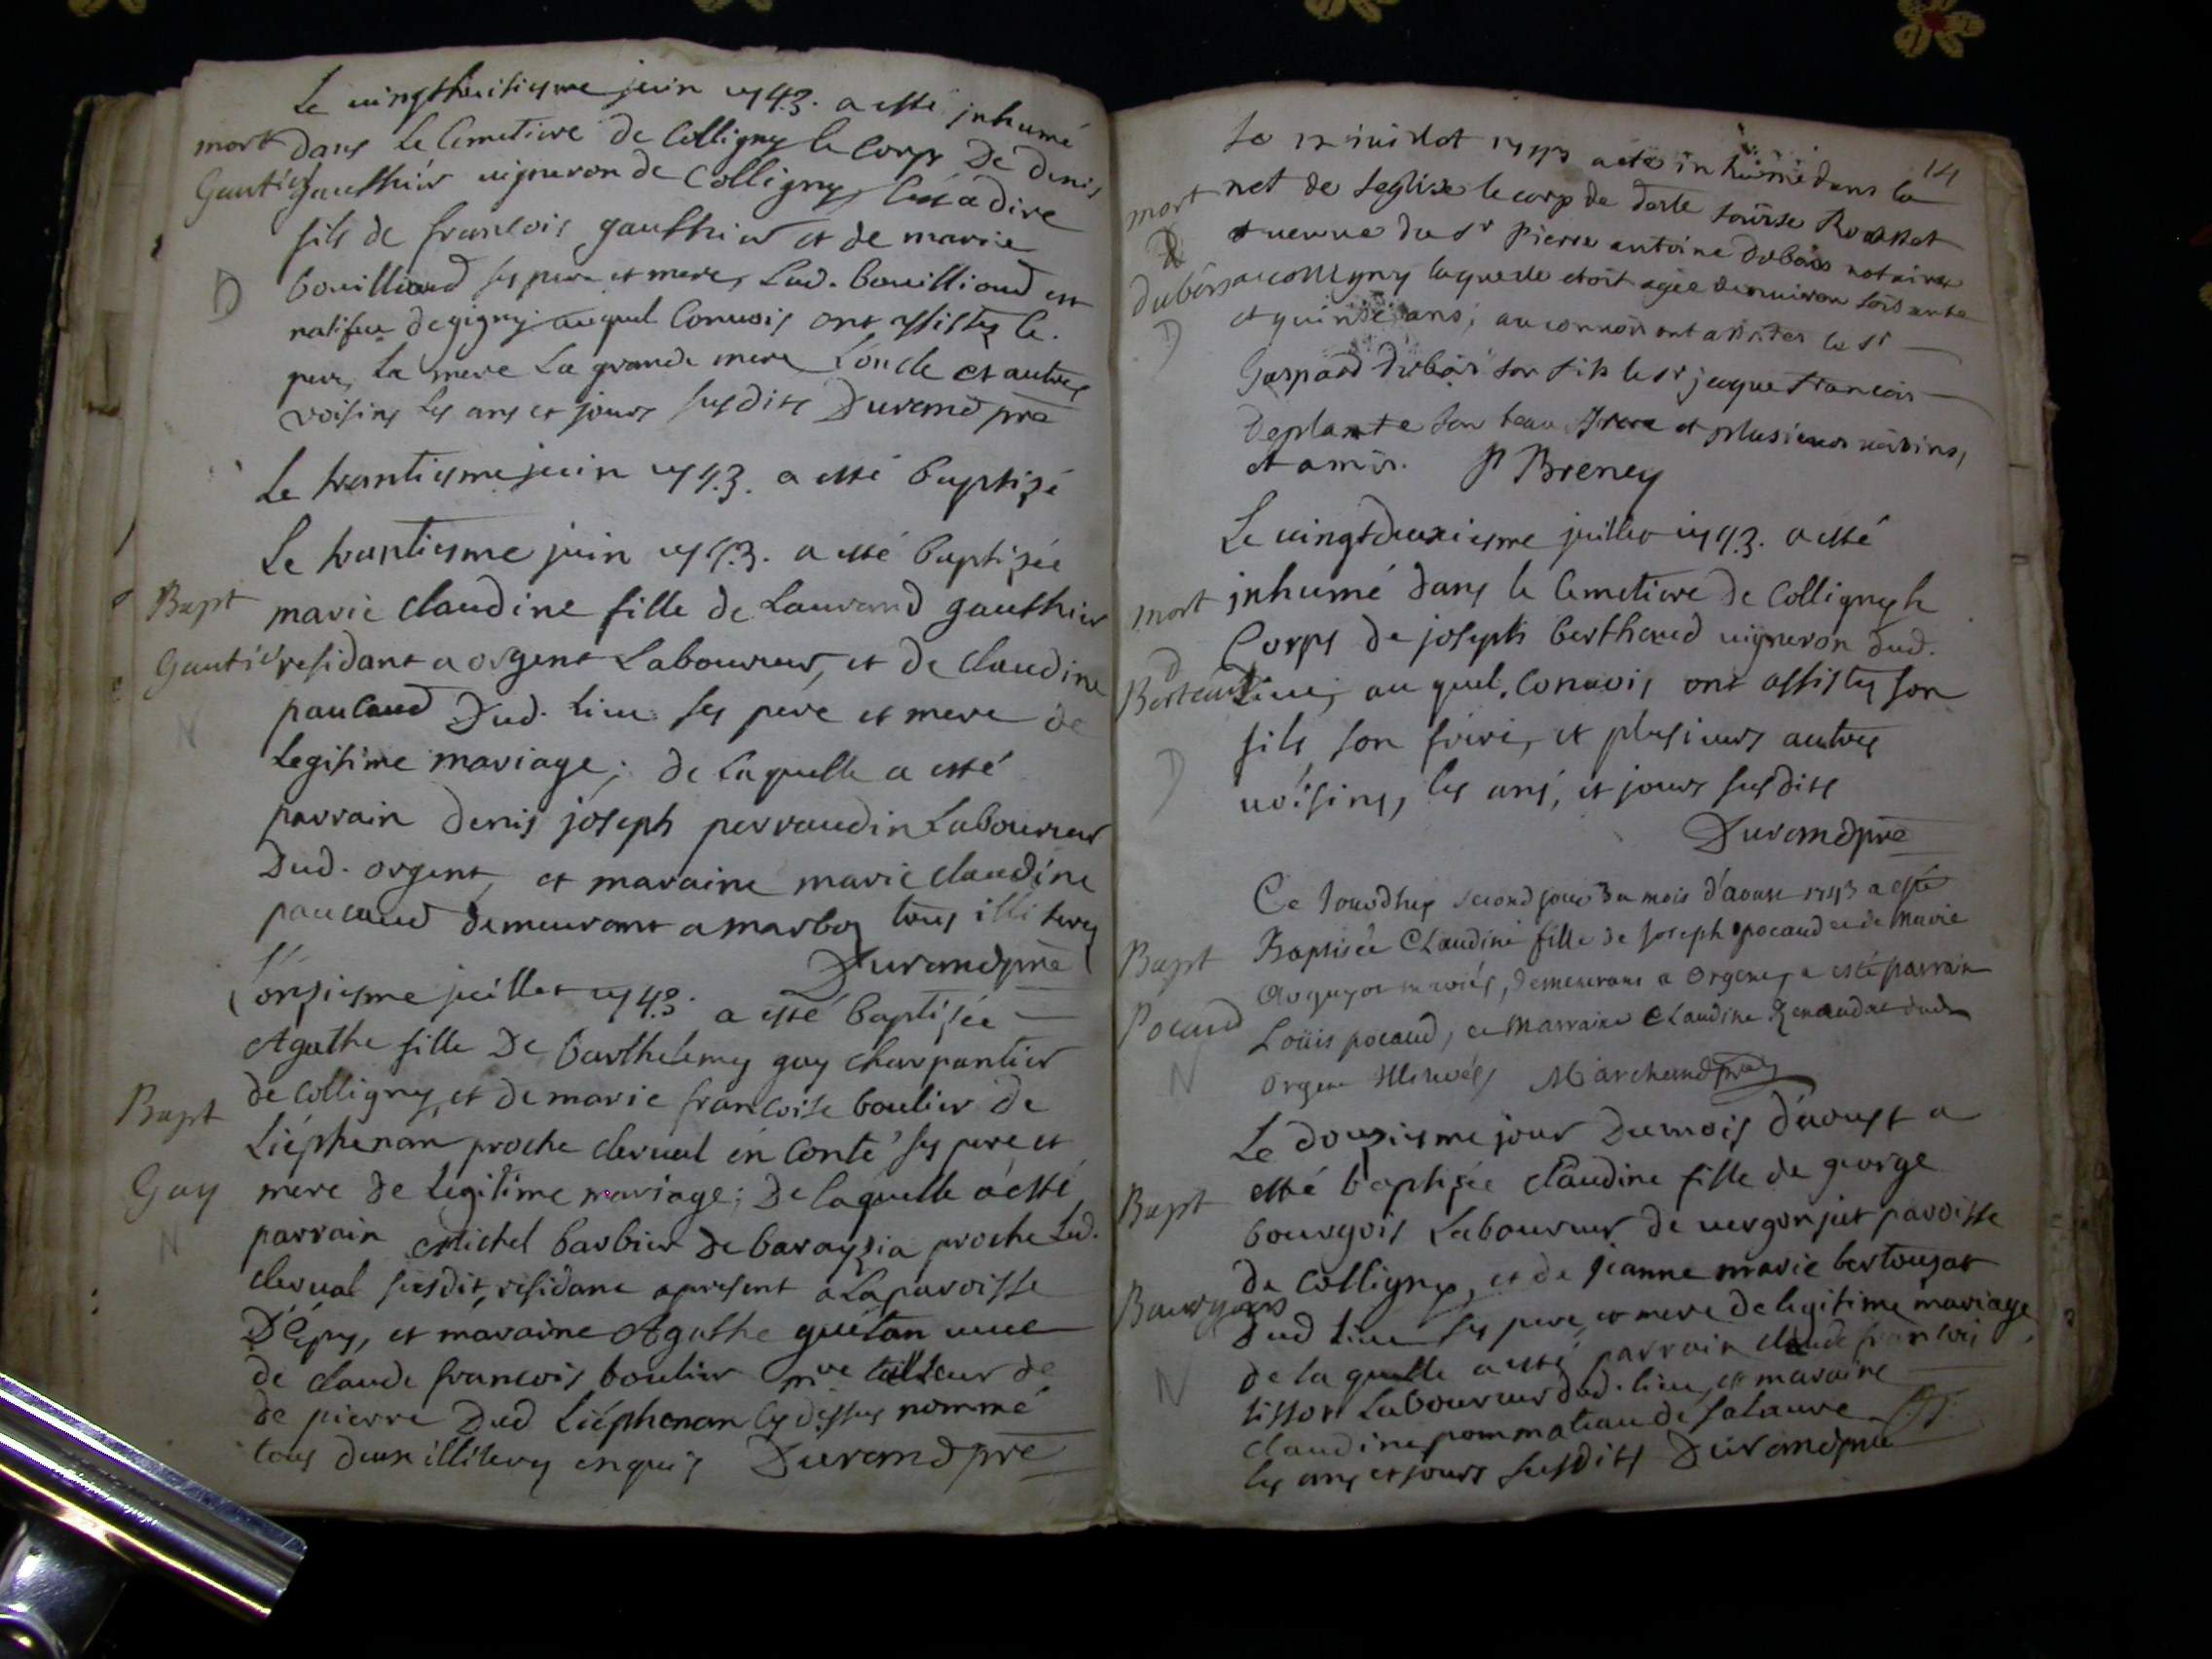 Le vingthuitiesme juin 1743. a esté inhumé
mort dans Le Cemetiere de Colligny le Corps De denis
Gautier gauthier vigneron de Colligny C'est a dire
fils de francois gauthier et de marie
D bouillioud ses pere et mere, Lad. bouillioud est
natifve de gigny auquel Convois ont assistez le.
pere, la mere La grande mere L'oncle et autres
voisins les ans et jours susdits Durand pre
Le trantiesme juin 1743. a esté baptizé
Le trantiesme juin 1743. a esté baptizée
Bapt marie claudine fille de Laurand gauthier
Gautier residant a orgent Laboureur, et de claudine
paucaud Dud. Lieu ses pere et mere de
N
Legitime mariage; de laquelle a esté
parrain denis joseph perraudin Laboureur
Dud. orgent, et maraine marie claudine
paucaud demeurant a marboz tous illiterez
Durand pre
L'onziesme juillet 1743. a esté baptisée
Agathe fille De barthelemy guy charpantier
Bapt de Colligny, et de marie francoise boulier de
Liéphenan proche clerval en Conté ses pere et
Guy mere de Legitime mariage; De laquelle a esté
N parrain Michel barbier de baraysia proche Led.
clerval susdit, residant apresent a La paroisse
D'épy, et maraine Agathe guétan
de claude francois boulier tailleur de
de pierre Dud Liéphenan cy dessus nommé
tous deux illiterez enquis Durand pre
14
Le 12 juillot 1743 a eté in humé dans la
mort net de leglise le corp de dosle loüise Rousset
D veuve du sr pierre antoine dubois notaire
dubois a colligny laquelle etoit agée denviron soisante
D et quinse ans; au convoi ont assistes le sr
Gaspard dubois son fils le sr jaque francois
Deplante son beau frere et plusieurs voisins,
et amis. P Breney
Le vingtdeuxiesme juillet 1743. a esté
mort jnhumé dans le Cemetiere de Colligny le
D Corps de joseph berthoud vigneron dud.
Bertoud Lieu; au quel. Convois ont assistez son
fils, son frere, et plusieurs autres
D voisins, les ans, et jours susdits
Durand pre
Ce Jourdhuy second jour du mois d'aoust 1743 a esté
Bapt Baptisée Claudine fille de Joseph pocaud et de Marie
mariés, demeurans a Orgent, a esté parrain
Pocaud Loüis pocaud, et Marraine Claudine Renaudat dud
N Orgent Illiterés Marchand pre
Le douziesme jour Dumois d'aoust a
esté baptisée claudine fille de george
Bapt bourgois Laboureur de vergonjat paroisse
de Colligny, et de jeanne marie bertouzat
Bourgeois Dud Lieu ses pere, et mere de legitime mariage
N de la quelle a esté parrain claude francois
tissot Laboureur dud. lieu, et maraine
claudine pommateau de salavre
les ans et jours susdits Durand pre